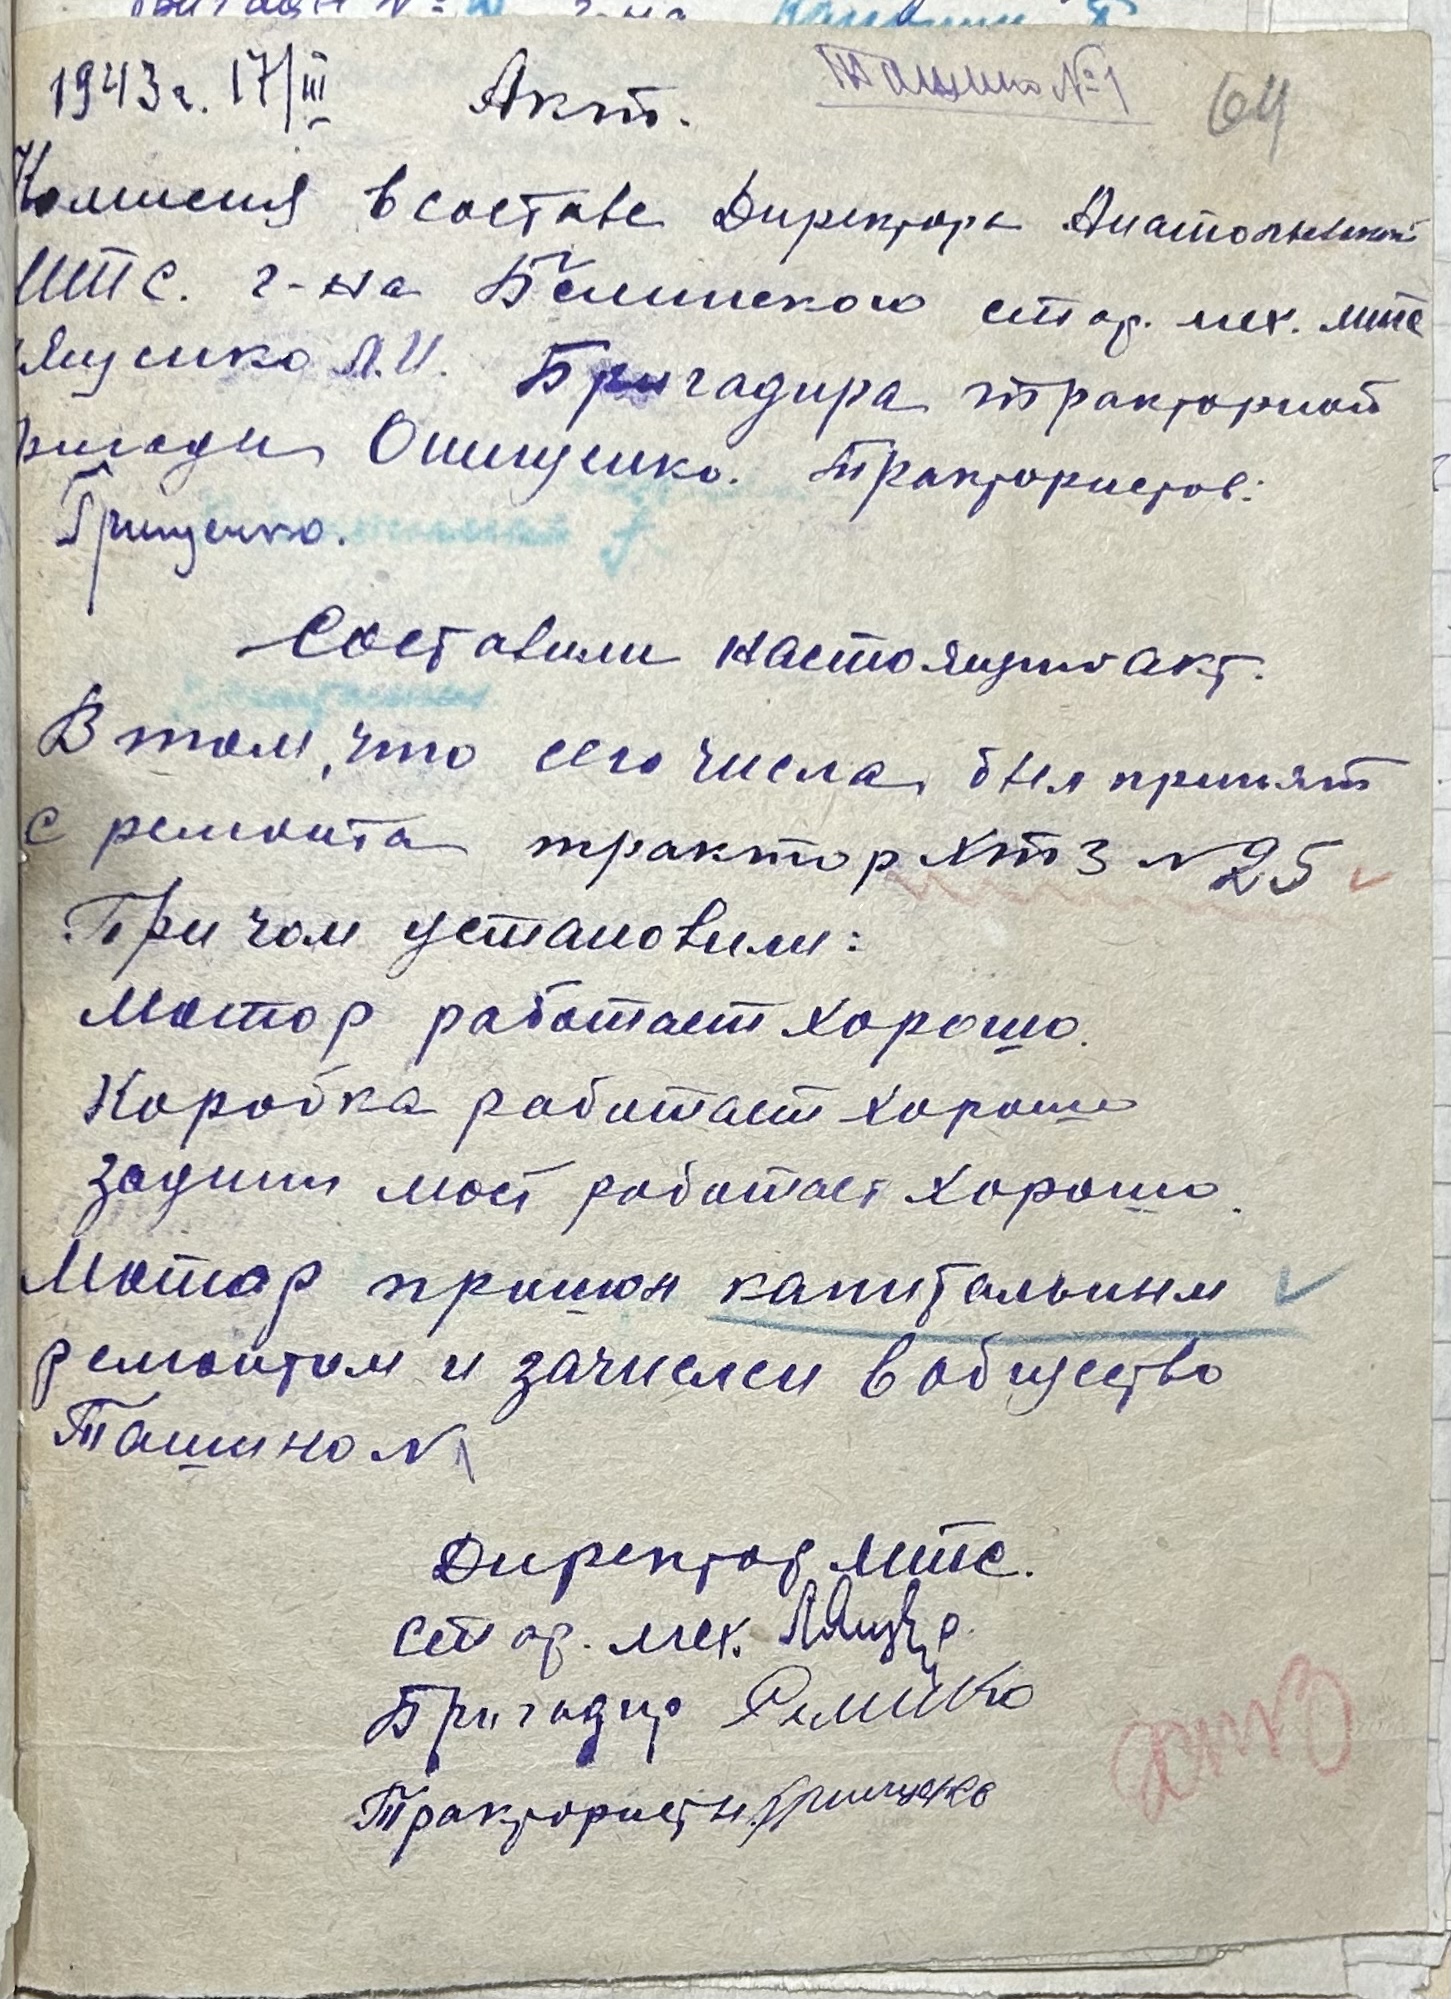 1943 г. 17/III Акт. Ташино №1 64
Комисия в составе Директора Анатольевской
МТС. г-на Белинского стар. мех. МТС
Ященко Л.И. Бригадира тракторной
бригади Онищенко. Трактористов:
Грищенко.
Составили настоящий акт.
В том, что сего числа был принят
с ремонта трактор ХТЗ № 25
При чом установили:
Мотор работает хорошо.
Коробка работает хорошо
задний мост работает хорошо.
Мотор прошон капитальним
ремонтом и зачислен в общество
Ташино № 1
Директор МТС.
стар. мех.
Бригадир
Трактористи. Грищенко